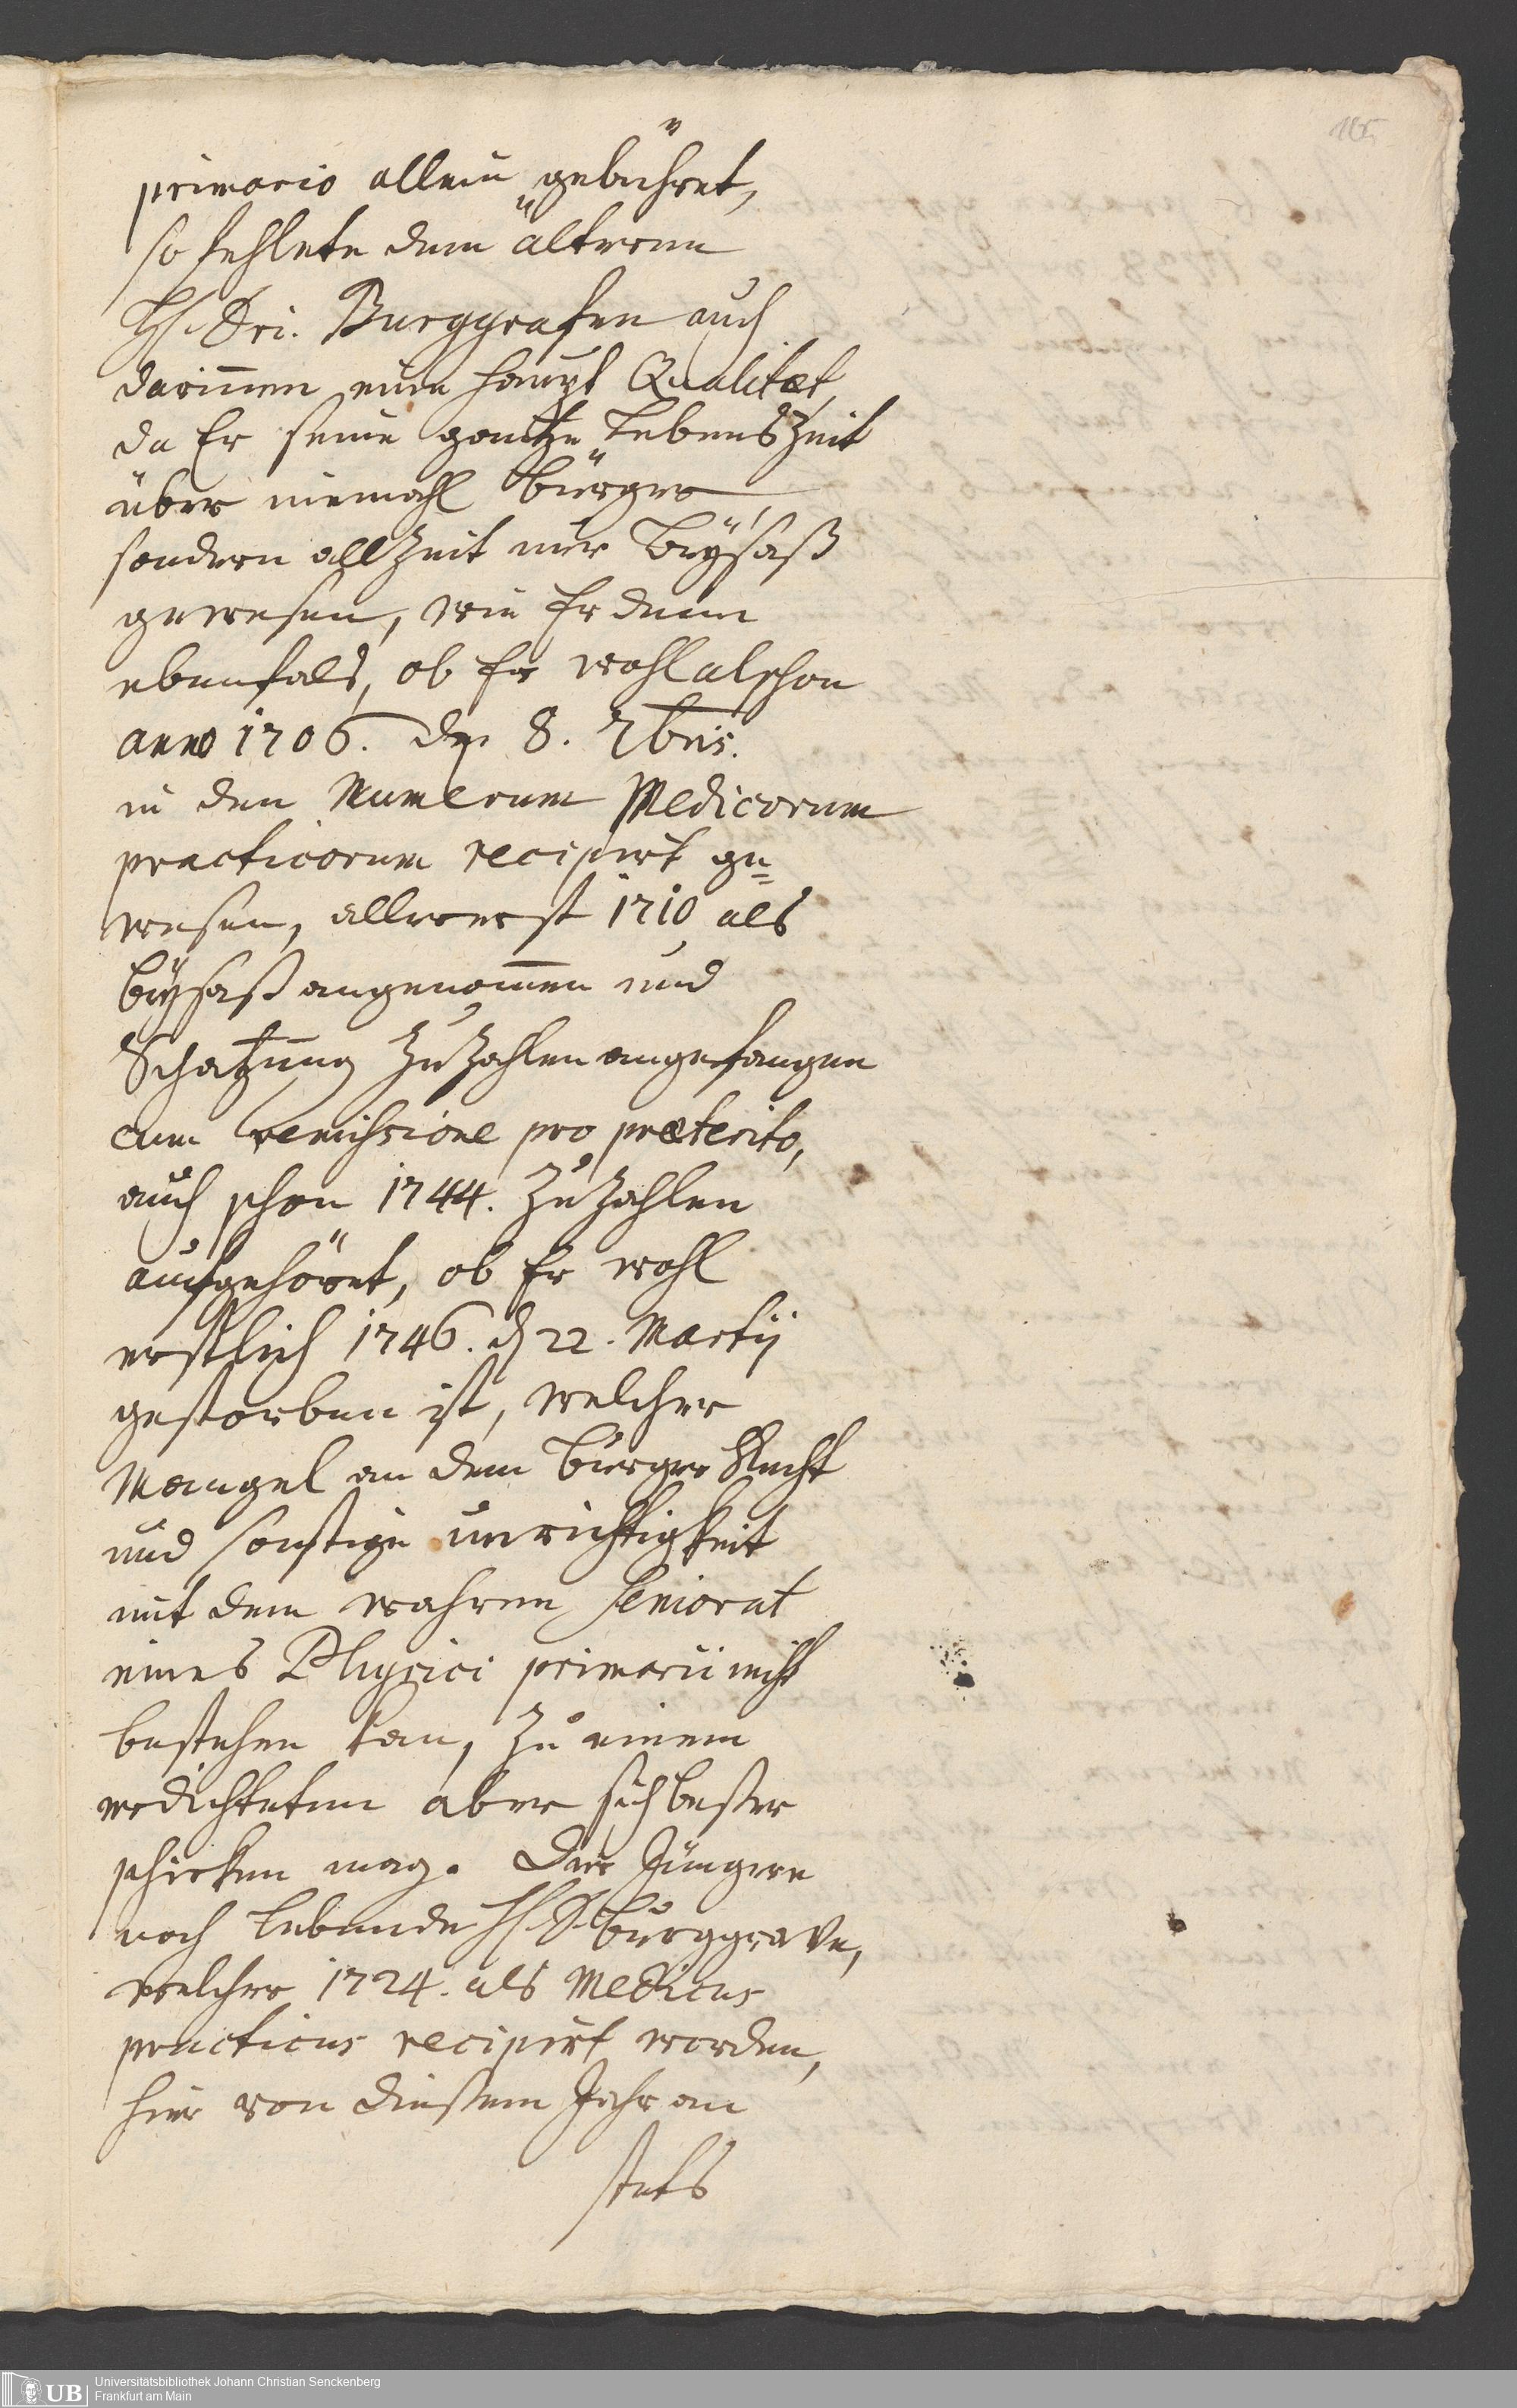 primario allein gebühret,
so fehlete dem älteren
H. Dri. Burggrafen auch
darinnen eine haupt Qualitæt,
da Er seine gantze LebensZeit
über niemahl bürger
sondern allZeit nur Beysäß
gewesen, wie Er denn
ebenfals, ob Er wohl alschon
anno 1706. den 8. 7bris.
in den Numerum Medicorum
practicorum recipirt ge=
wesen, allererst 1710 als
beysaß angenommen und
Schatzung zu zahlen angefangen
cum remissione pro præterito,
auch schon 1744. zu zahlen
aufgehöret, ob Er wohl
erstlich 1746. d 22. Martij
gestorben ist, welcher
Mangel an dem bürger Recht
und sonstige unrichtigkeit
mit dem wahren Seniorat
eines Physici primarii nicht
bestehen kan, zu einem
erdichteten aber sich besser
schicken mag. Der Jüngere
noch lebende H. D. burggrave,
welcher 1724. als Medicus
practicus recipirt worden,
hier von diesem Jahr an
stets
Universitätsbibliothek Johann Christian Senckenberg
Frankfurt am Main
UB